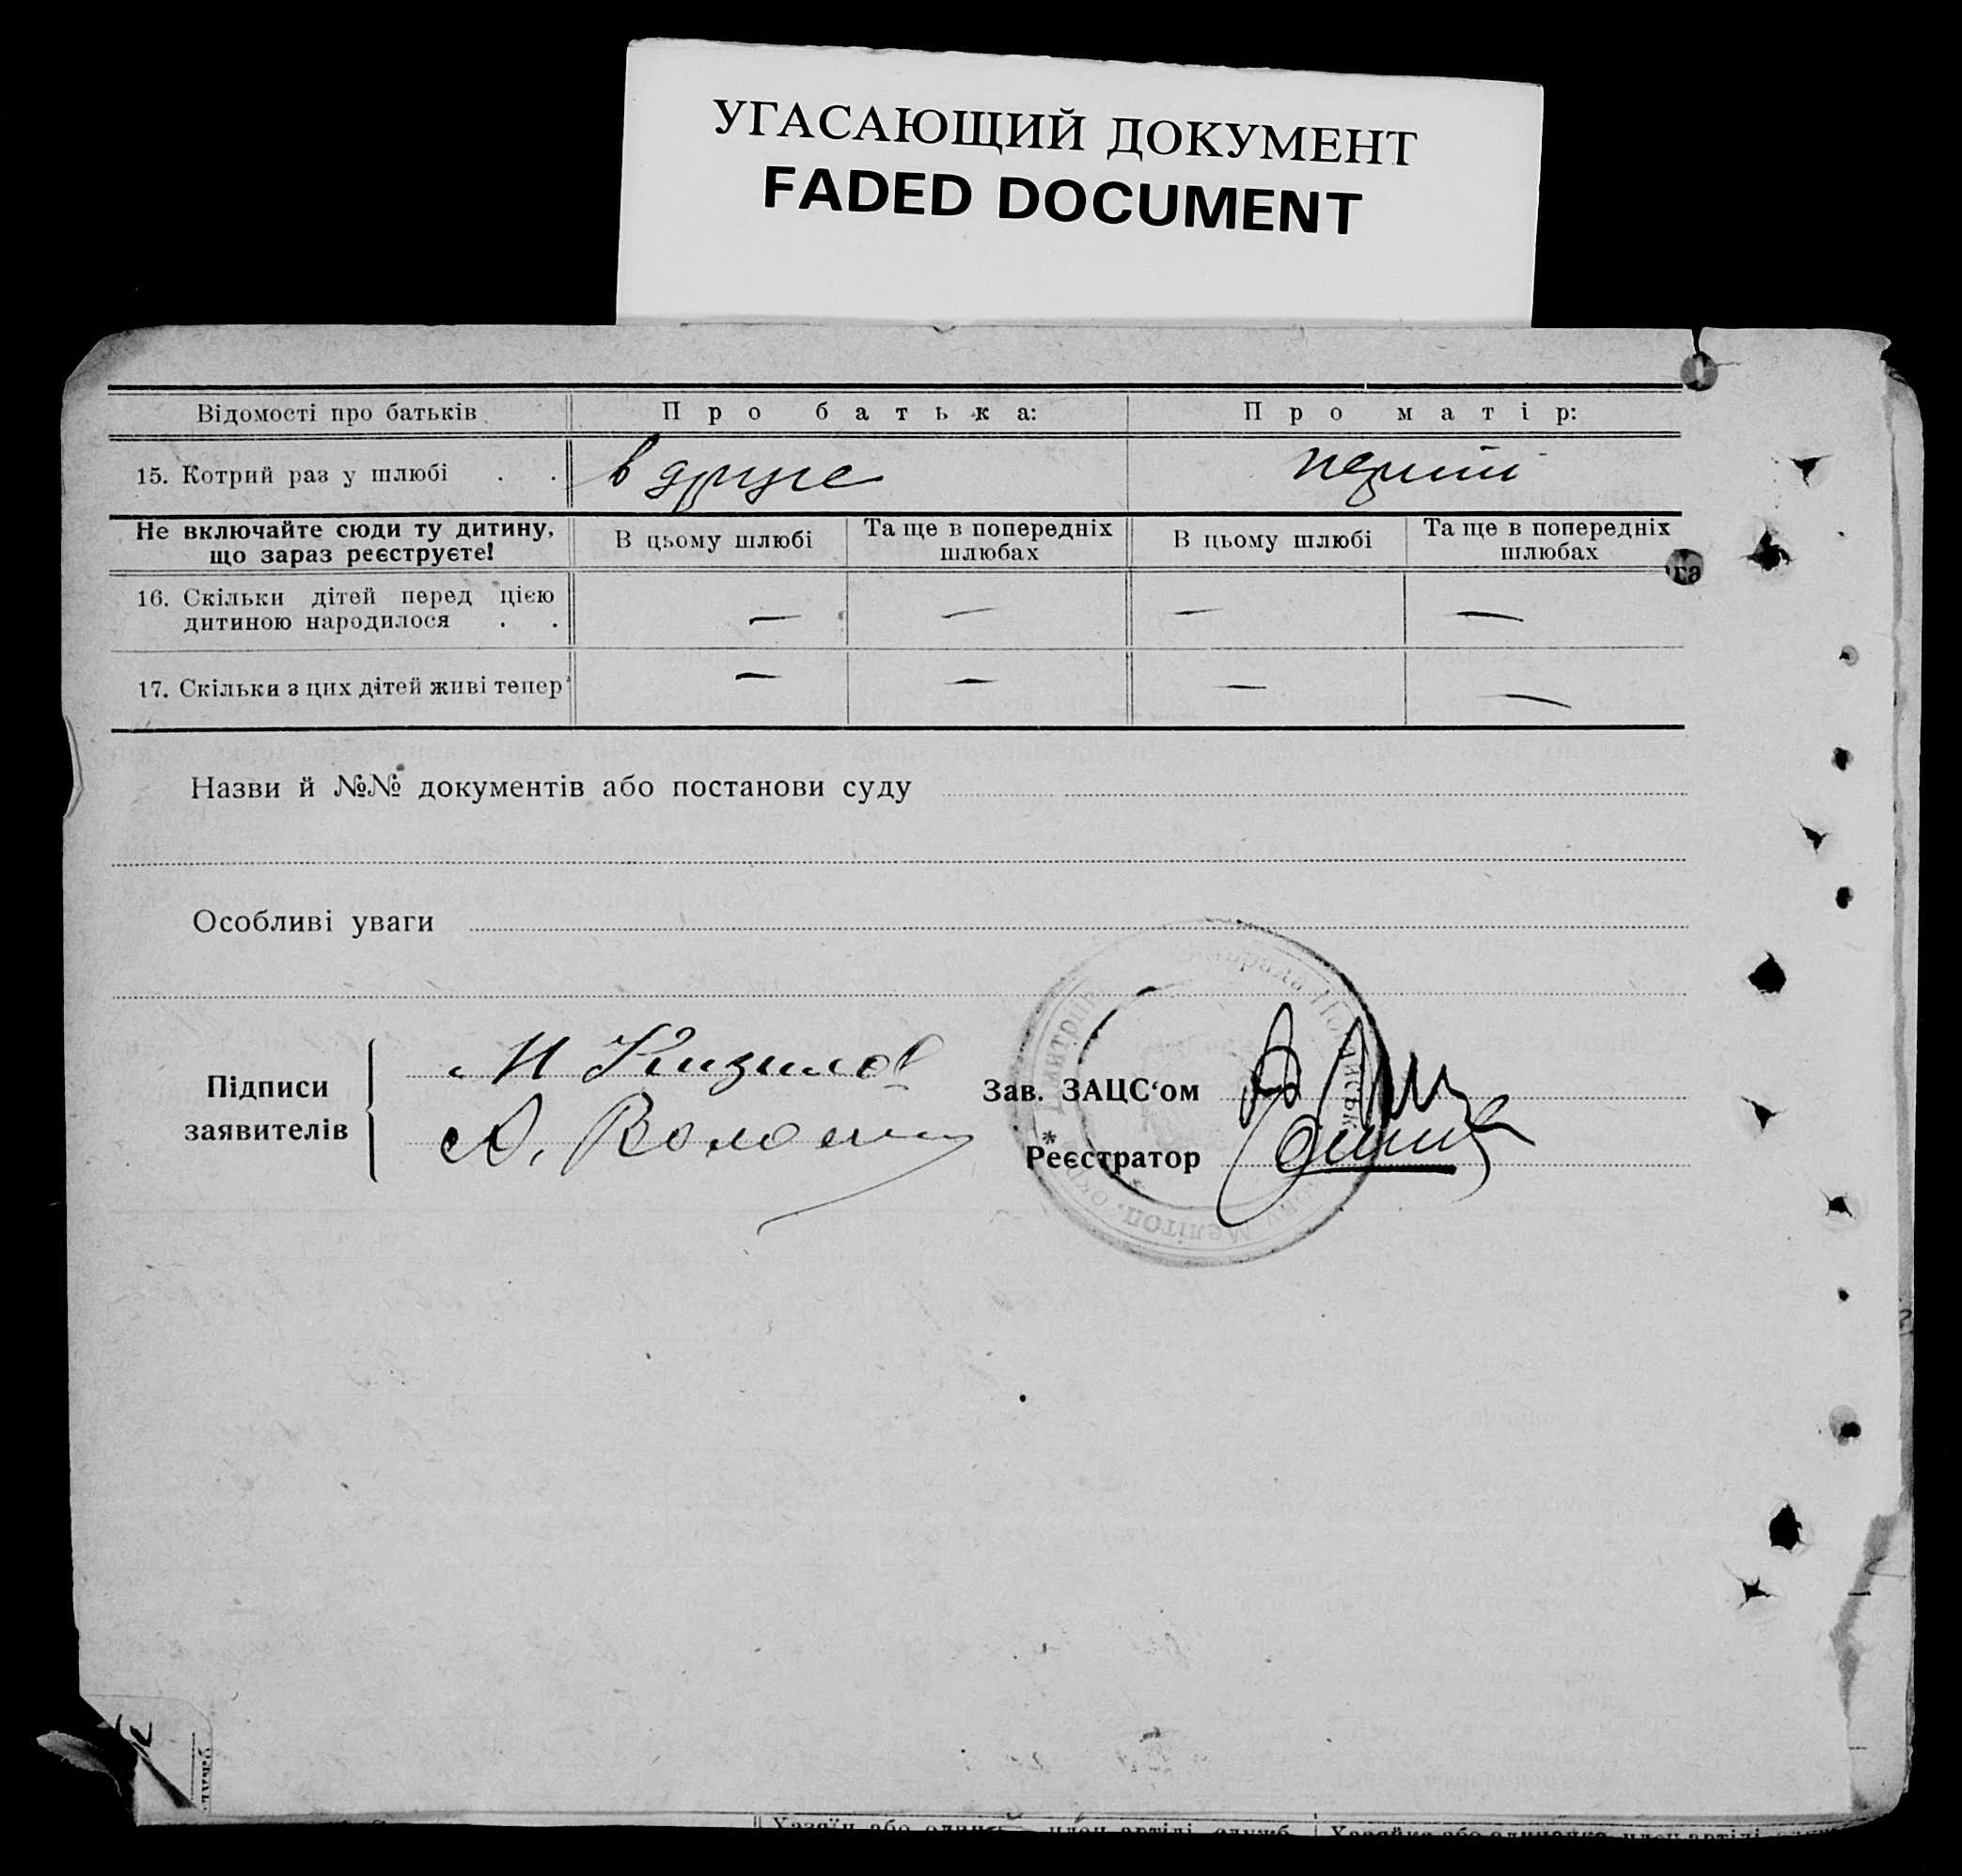 УГАСАЮЩИЙ ДОКУМЕНТ
FADED DOCUMENT
Відомості про батьків
Про батька:
Про матір:
15. Котрий раз у шлюбі . .
вдруге
перший
Не включайте сюди ту дитину,
що зараз реєструєте!
В цьому шлюбі
Та ще в попередніх
шлюбах
В цьому шлюбі
Та ще в попередніх
шлюбах
га
16. Скільки дітей перед цією
дитиною народилося . .
— — — —
17. Скільки з цих дітей живі тепер
— — — —
Назви й №№ документів або постанови суду
Особливі уваги
Підписи
заявителів
М Кизилов
А.
Зав. ЗАЦС‘ом
Реєстратор
Мелітоп. окр
Хазяїн або один член артілі, служб.
Хазяйка або одиначка, член артілі